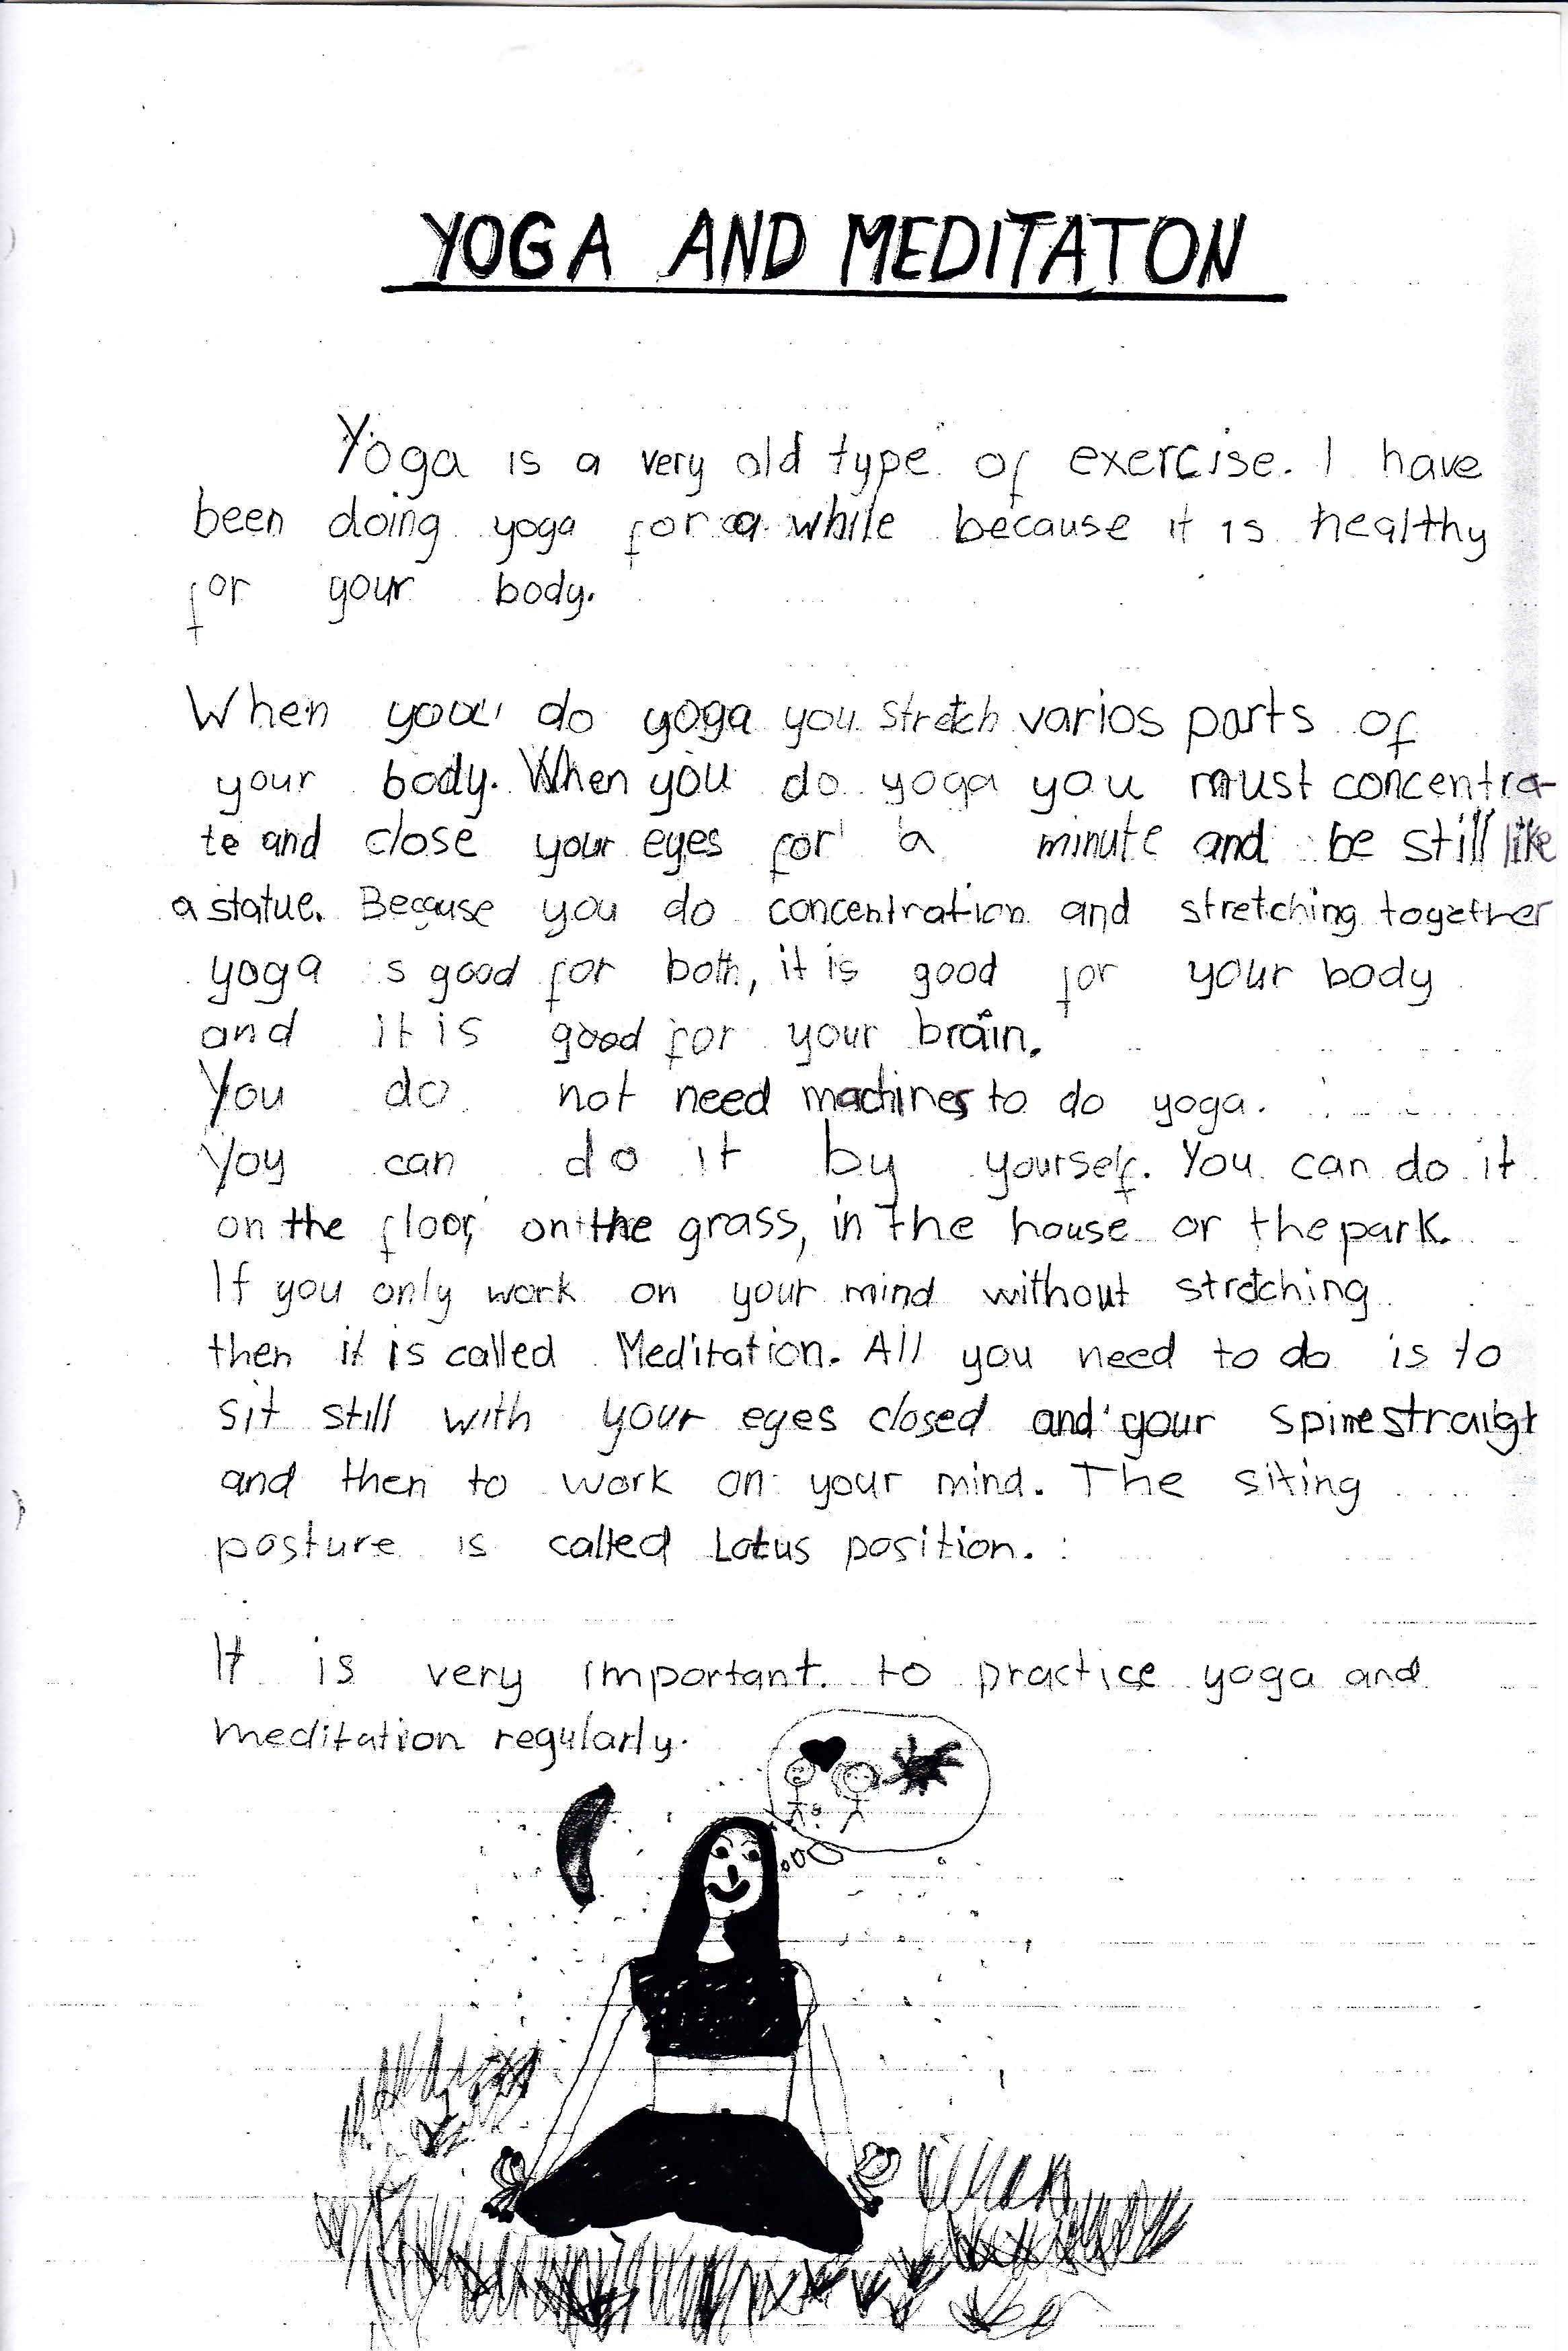 YOGA AND MEDITATON
Yoga is a very old type of exercise. I have
been doing yoga for a while because it is healthy
for your body.
When you do yoga you stretch varios parts of
your body. When you do yoga you must concentra-
te and close your eyes for a minute and be still like
a statue. Because you do concentration and stretching together
yoga is good for both, it is good for your body
and it is good for your brain.
You do not need machines to do yoga.
Yoy can do it by yourself. You can do it
on the floor, on the grass, in the house or the park.
If you only work on your mind without stretching
then it is called Meditation. All you need to do is to
sit still with your eyes closed and your spine straigt
and then to work on your mind. The siting
posture is called Lotus position.
It is very important to practice yoga and
meditation regularly.